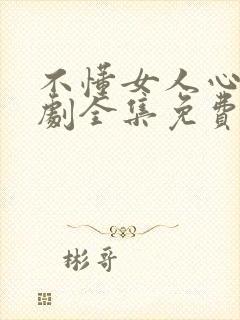 不懂女人心
劇全集免費
彬哥